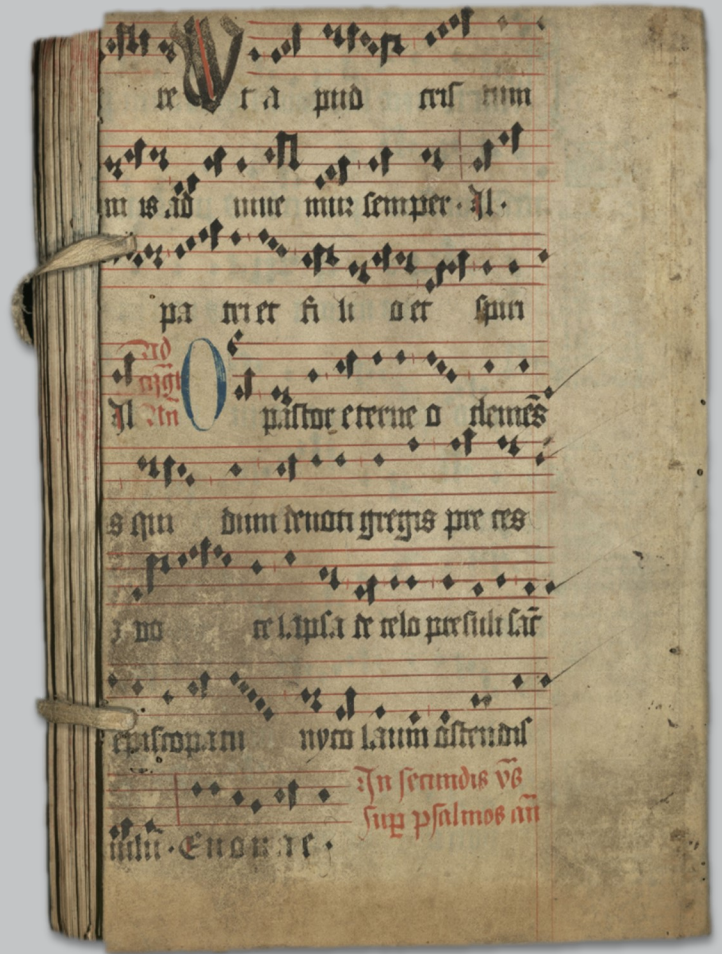 re V t a pud cris tum
m is ad iuue mur semper. Al.
pa tri et fi li o et spiri
Ad
Al An O pastor eterne o clemēs
s qui dum deuoti gregis pre ces
vo ce lapsa de celo presuli sāc
episcopatu nyco laum ostendis
In secundis vs̄
sup psalmos an̄
mlū. Euouae.